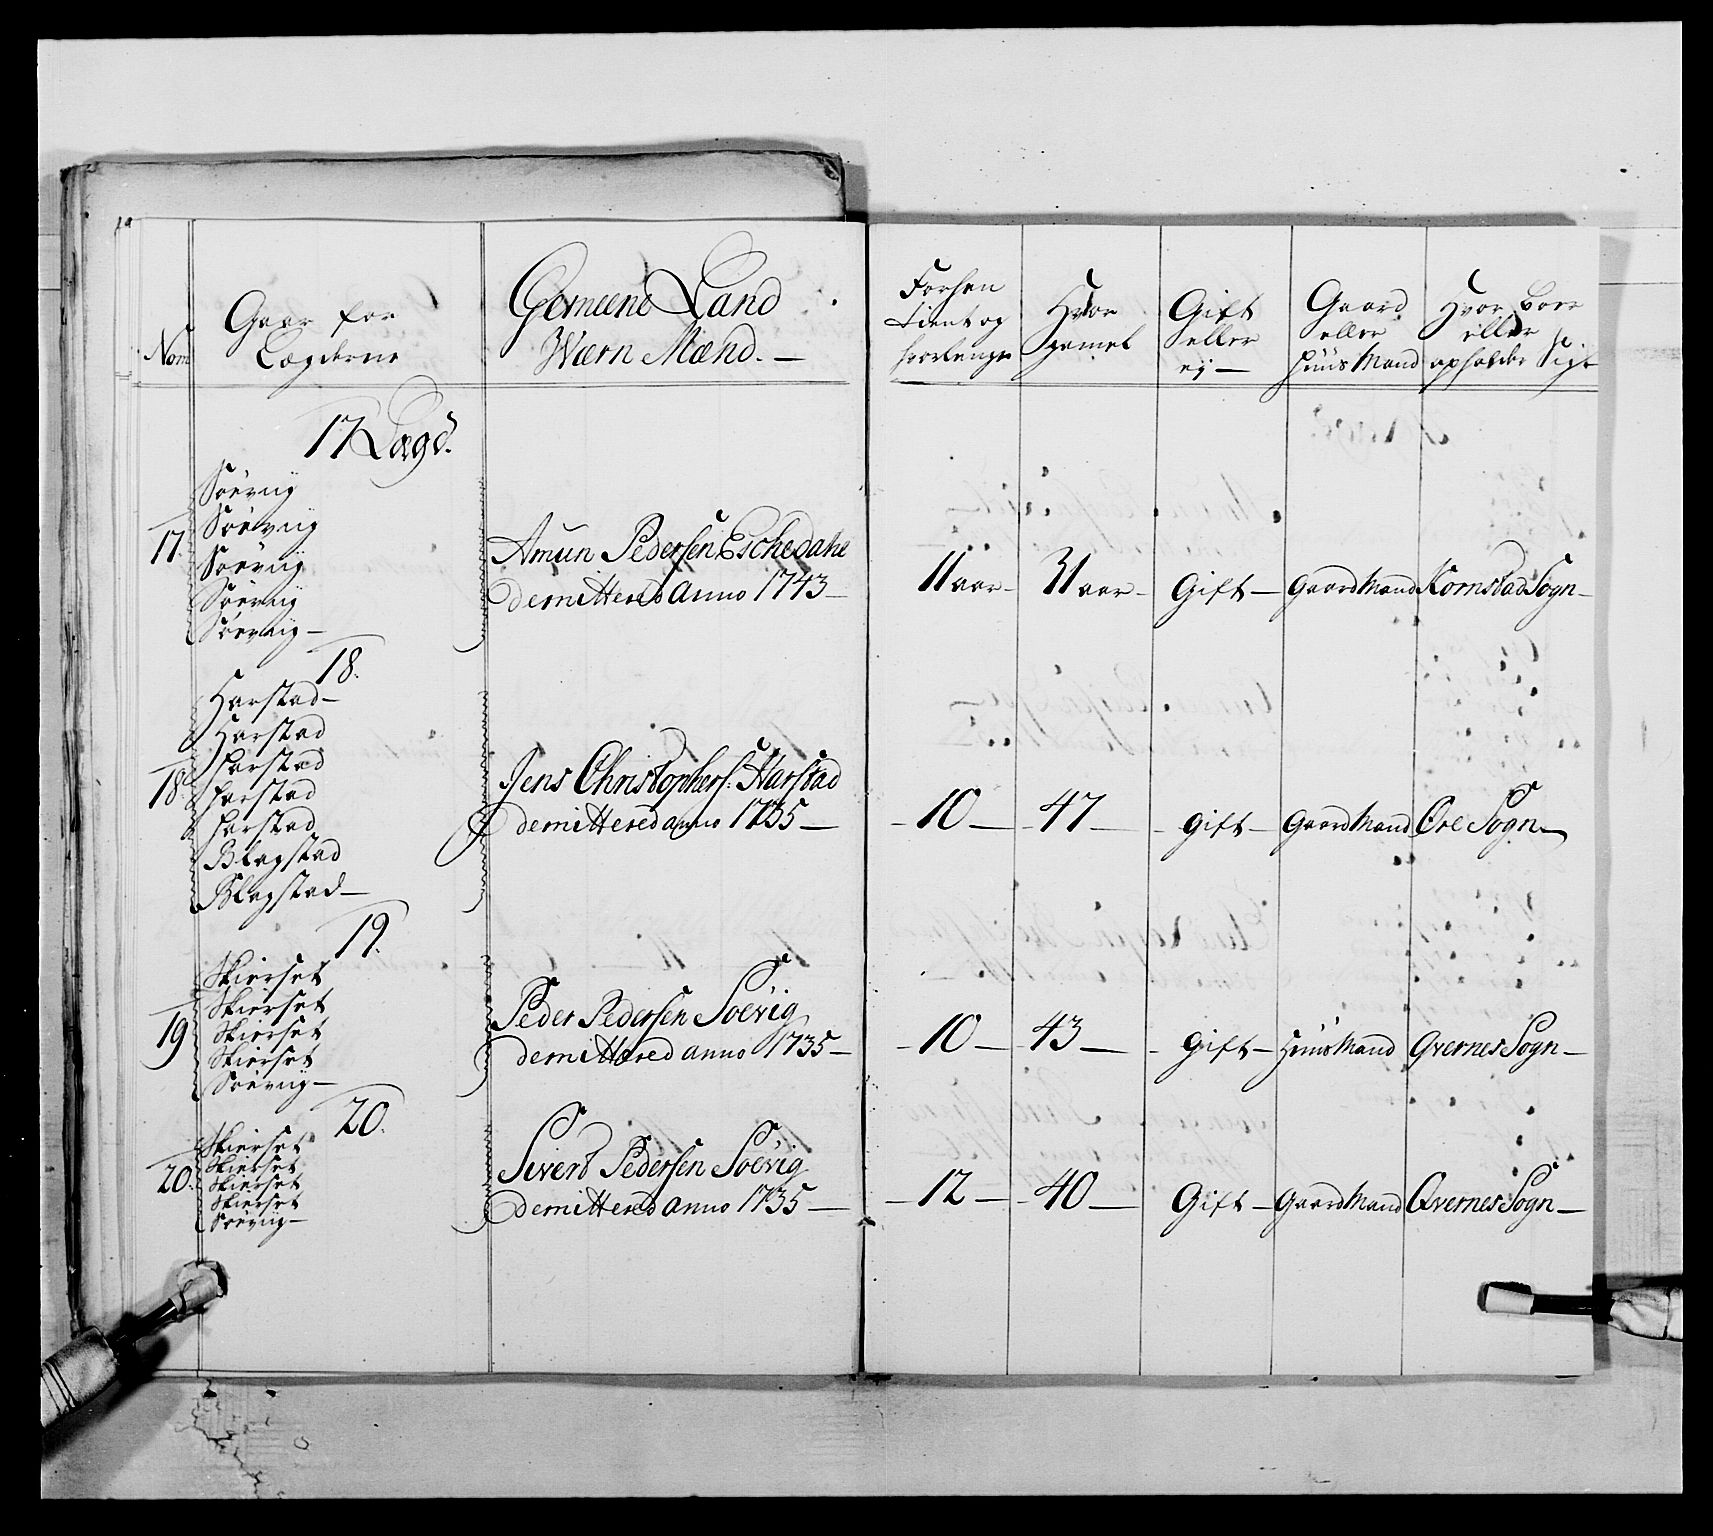 Nom
Gaar for
Lægderne
Gemeene Land
Wærn Mænd. —
Forhen
tient og
hvorlenge
Hvor
gamel
Gift
eller
ej —
Gaard
eller
Huus Mand
Hvor boer
eller
opholder Sigt
17 Lægd.
Soevig
Soevig
Soevig
Soevig
Soevig —
17.
Amun Pedersen Eschedahl
demittered anno 1743 —
11 aar —
31 aar —
Gift —
Gaard Mand
Kornstad Sogn —
18.
Harstad —
Harstad
Harstad
Harstad
Harstad
Blagstad
Blagstad —
18.
Jens Christophers: Harstad
demittered anno 1735 —
— 10 —
— 47 —
— gift —
Gaard Mand
Öre Sogn —
19.
Skierset
Skierset
Skierset
Skierset
Soevig —
19
Peder Pedersen Soevig
demittered anno 1735 —
— 10 —
— 43 —
— gift —
Huus Mand
Qvernes Sogn —
20.
Skierset
Skierset
Skierset
Skierset
Soevig —
20.
Sivert Pedersen Soevig
demittered anno 1735 —
— 12 —
— 40 —
Gift —
Gaard Mand
Qvernes Sogn —